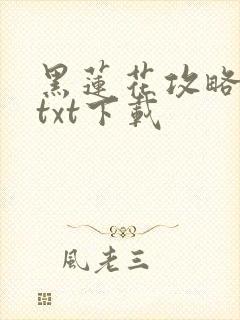 黑蓮花攻略
txt下載
風老三